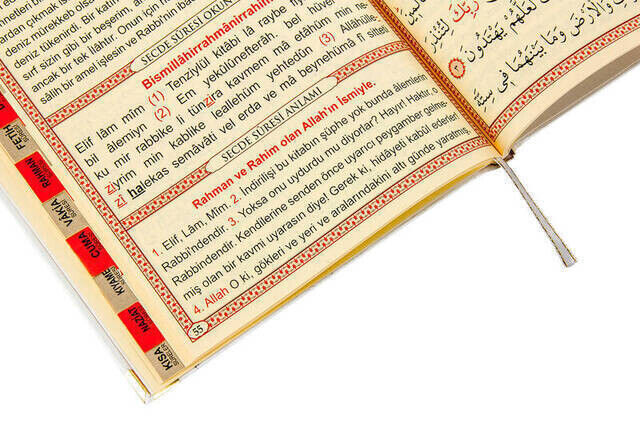 deniz mürekkep olsa
deniz tükenirdi. Bir katın
sırf sizin gibi bir beşerim, an
ancak bir tek ilâhtır. Onun için
sâlih bir amel işlesin ve Rabb'inin ibad
SECDE SÛRESİ OKUN
Bismillâhirrahmânirrahîm
Elif lâm mîm (1) Tenzîylül kitâbi lâ raybe
bil âlemiyn (2) Em yekûlûnefterâh. bel
ku mir rabbike li tünzira kavmem mâ etâhüm min ne
ziyrim min kablike leallehüm yehtedûn (3) Allâhülle-
zî halekas semâvâti vel erda ve mâ beynehümâ fî sitteti
SECDE SÛRESİ ANLAMI
Rahman ve Rahim olan Allah'ın ismiyle.
1. Elif, Lâm, Mîm. 2. İndirilişi bu kitabın şüphe yok bunda âlemlerin
Rabbi'ndendir. 3. Yoksa onu uydurdu mu diyorlar? Hayır! Haktır, o
Rabbindendir. Kendilerine senden önce uyarıcı peygamber gelme-
miş olan bir kavmi uyarasın diye! Gerek ki, hidâyeti kabûl ederler!
4. Allah O ki, gökleri ve yeri ve aralarındakini altı günde yaratmış,
55
رَبِّكَ لِتُنْذِرَ
لَعَلَّهُمْ يَهْتَدُونَ
وَالْاَرْضَ وَمَا بَيْنَهُمَا فِي سِتَّةِ
FETİH
RAHMAN
VAKIA
CUMA
KIYAME
NAZİAT
KISA
SURELER